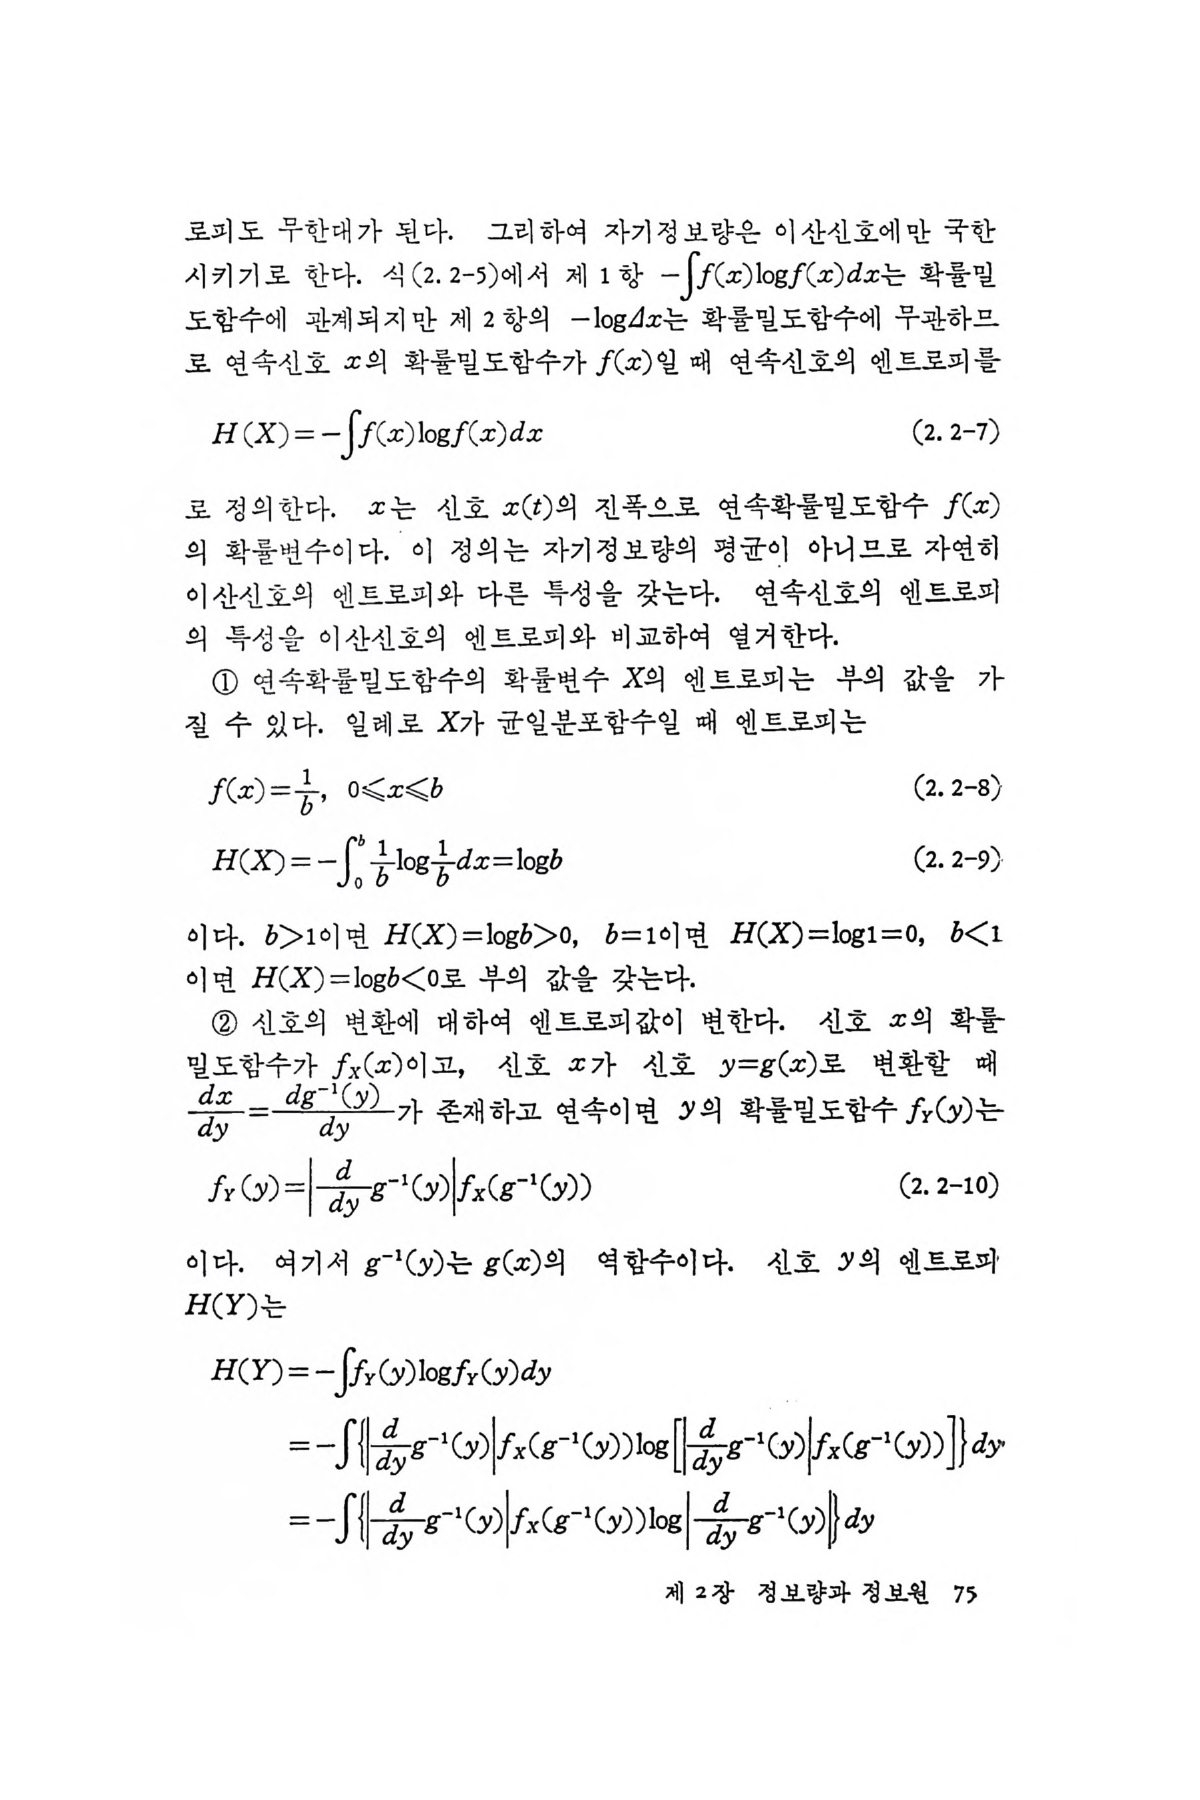 로피도 무한대가 된다. 그리하여 자기정보량은 이산신호에만 국한
시키기로 한다. 식(2. 2-5)에서 제 1 항 −∫f(x)logf(x)dx는 확률밀
도함수에 관계되지만 제 2 항의 −logΔx는 확률밀도함수에 무관하므
로 연속신호 x의 확률밀도함수가 f(x)일 때 연속신호의 엔트로피를
H(X)=−∫f(x)logf(x)dx (2. 2-7)
로 정의한다. x는 신호 x(t)의 진폭으로 연속확률밀도함수 f(x)
의 확률변수이다. 이 정의는 자기정보량의 평균이 아니므로 자연히
이산신호의 엔트로피와 다른 특성을 갖는다. 연속신호의 엔트로피
의 특성을 이산신호의 엔트로피와 비교하여 열거한다.
① 연속확률밀도함수의 확률변수 X의 엔트로피는 부의 값을 가
질 수 있다. 일례로 X가 균일분포함수일 때 엔트로피는
f(x)=1/b, 0≤x≤b (2. 2-8)
H(X)=−∫₀ᵇ 1/b log 1/b dx=logb (2. 2-9)
이다. b>1이면 H(X)=logb>0, b=1이면 H(X)=log1=0, b<1
이면 H(X)=logb<0로 부의 값을 갖는다.
② 신호의 변환에 대하여 엔트로피값이 변한다. 신호 x의 확률
밀도함수가 f_X(x)이고, 신호 x가 신호 y=g(x)로 변환할 때
dx/dy = dg⁻¹(y)/dy 가 존재하고 연속이면 y의 확률밀도함수 f_Y(y)는
f_Y(y)=|d/dy g⁻¹(y)|f_X(g⁻¹(y)) (2. 2-10)
이다. 여기서 g⁻¹(y)는 g(x)의 역함수이다. 신호 y의 엔트로피
H(Y)는
H(Y)=−∫f_Y(y)logf_Y(y)dy
=−∫{|d/dy g⁻¹(y)|f_X(g⁻¹(y))log[|d/dy g⁻¹(y)|f_X(g⁻¹(y))]}dy
=−∫{|d/dy g⁻¹(y)|f_X(g⁻¹(y))log|d/dy g⁻¹(y)|}dy
제 2 장 정보량과 정보원 75